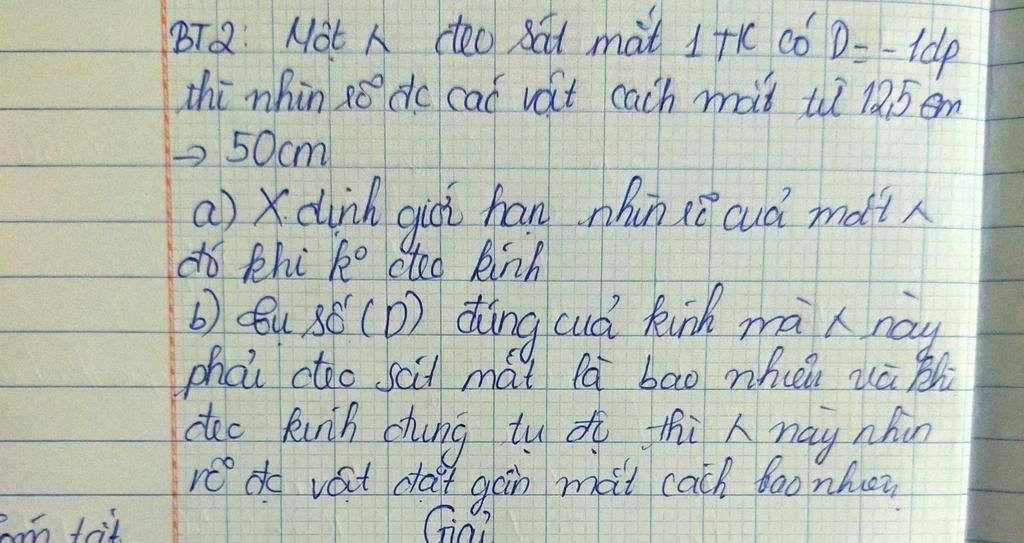 BT2: Một ʌ đeo sát mắt 1 TK có D = -1dp
thì nhìn rõ đc các vật cách mắt từ 12,5 cm
→ 50cm
a) X.định giới hạn nhìn rõ của mắt ʌ
đó khi ko đeo kính
b) Độ số (D) đúng của kính mà ʌ này
phải đeo sát mắt là bao nhiêu và khi
đeo kính đúng tụ đó thì ʌ này nhìn
rõ đc vật đặt gần mắt cách bao nhiêu
óm tắt Giải